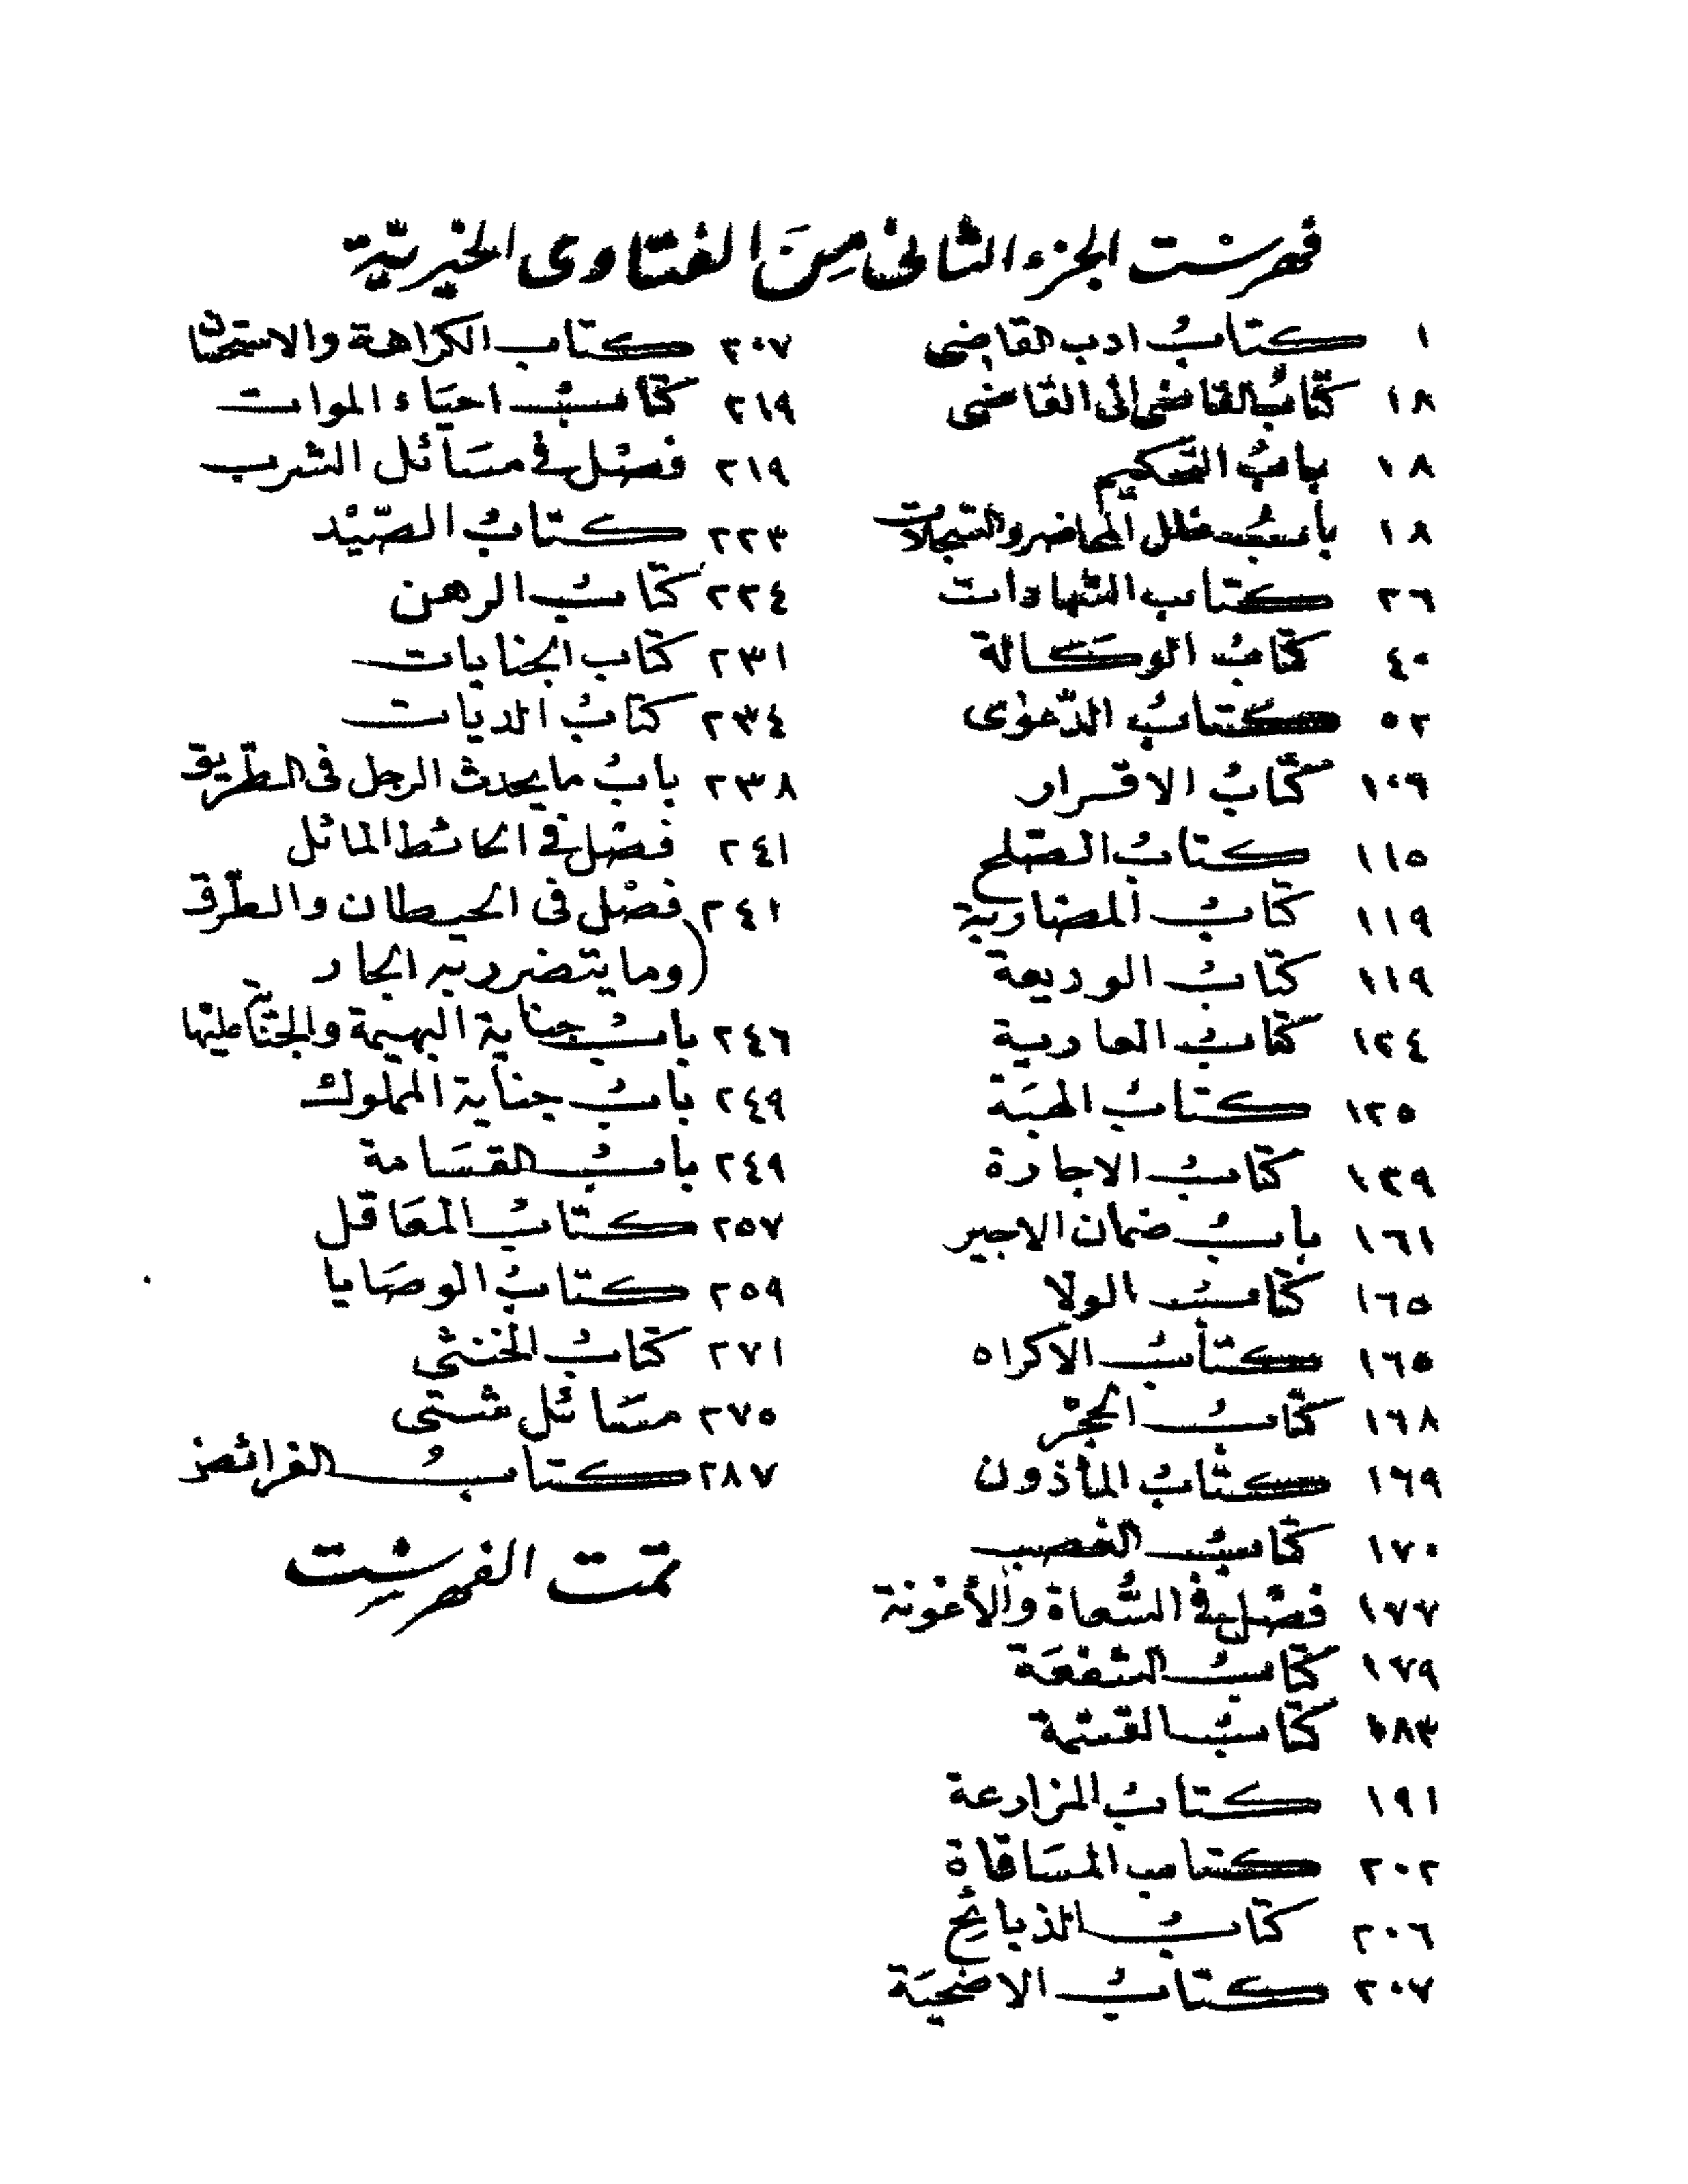 فهرست الجزء الثانى من الفتاوى الخيرية
١ كتاب ادب القاضى
١٨ كتاب القاضى الى القاضى
١٨ باب التحكيم
١٨ باب خلل المحاضر والسجلات
٢٦ كتاب الشهادات
٤٠ كتاب الوكالة
٥٢ كتاب الدعوى
١٠٦ كتاب الاقرار
١١٥ كتاب الصلح
١١٩ كتاب المضاربة
١١٩ كتاب الوديعة
١٢٤ كتاب العارية
١٢٥ كتاب الهبة
١٣٩ كتاب الاجارة
١٦١ باب ضمان الاجير
١٦٥ كتاب الولا
١٦٥ كتاب الاكراه
١٦٨ كتاب الحجر
١٦٩ كتاب المأذون
١٧٠ كتاب الغصب
١٧٧ فصل فى السعاة والأعونة
١٧٩ كتاب الشفعة
١٨٣ كتاب القسمة
١٩١ كتاب المزارعة
٢٠٢ كتاب المساقاة
٢٠٦ كتاب الذبائح
٢٠٧ كتاب الاضحية
٢٠٧ كتاب الكراهة والاستحسان
٢١٩ كتاب احياء الموات
٢١٩ فصل فى مسائل الشرب
٢٢٣ كتاب الصيد
٢٢٤ كتاب الرهن
٢٣١ كتاب الجنايات
٢٣٤ كتاب الديات
٢٣٨ باب ما يحدث الرجل فى الطريق
٢٤١ فصل فى الحائط المائل
٢٤١ فصل فى الحيطان والطرق
(وما يتضرر به الجار
٢٤٦ باب جناية البهيمة والجناية عليها
٢٤٩ باب جناية المملوك
٢٤٩ باب القسامة
٢٥٧ كتاب المعاقل
٢٥٩ كتاب الوصايا
٢٧١ كتاب الخنثى
٢٧٥ مسائل شتى
٢٨٧ كتاب الفرائض
تمت الفهرست